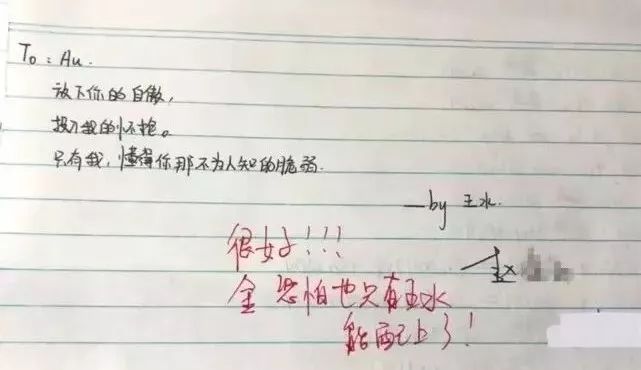 To：Au.
放下你的自傲，
投入我的怀抱。
只有我，懂得你那不为人知的脆弱.
—by 王水.
赵
很好!!!
金恐怕也只有王水
能配上了!